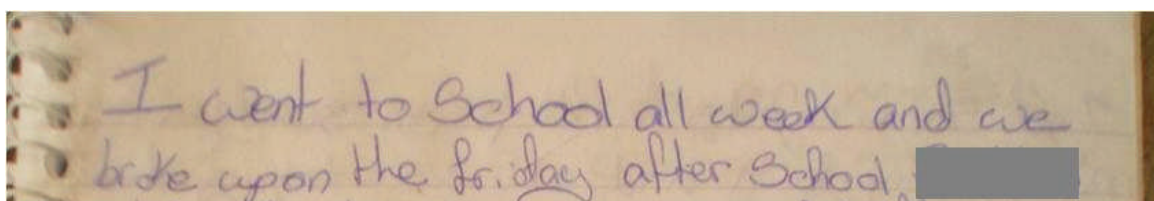 I went to School all week and we
broke upon the friday after School.